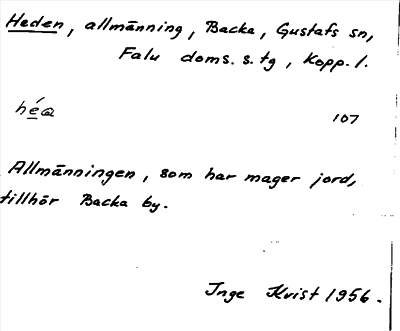 Heden, allmänning, Backa, Gustafs sn,
Falu doms. s. tg, Kopp. l.
héa 107
Allmänningen, som har mager jord,
tillhör Backa by.
Inge Kvist 1956.